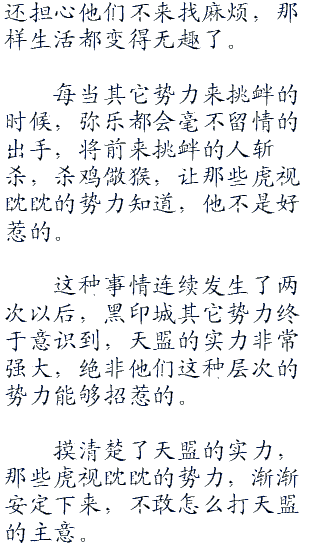 还担心他们不来找麻烦，那
样生活都变得无趣了。
每当其它势力来挑衅的
时候，弥乐都会毫不留情的
出手，将前来挑衅的人斩
杀，杀鸡儆猴，让那些虎视
眈眈的势力知道，他不是好
惹的。
这种事情连续发生了两
次以后，黑印城其它势力终
于意识到，天盟的实力非常
强大，绝非他们这种层次的
势力能够招惹的。
摸清楚了天盟的实力，
那些虎视眈眈的势力，渐渐
安定下来，不敢怎么打天盟
的主意。